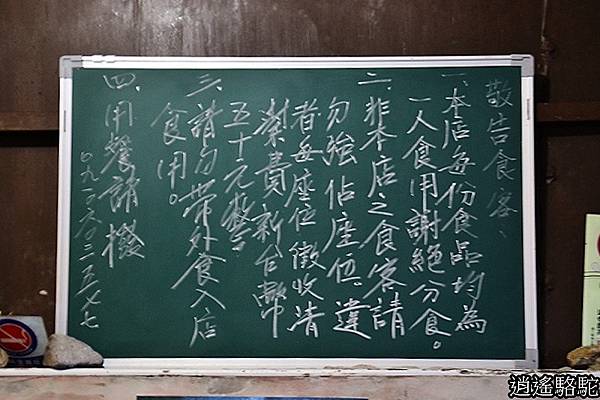 敬告食客、
一、本店每份食品均為
一人食用謝絕分食。
二、非本店之食客請
勿強佔座位。違
者每座位徵收清
潔費新台幣
五十元整
三、請勿帶外食入店
食用。
四、用餐請機
逍遙駱駝